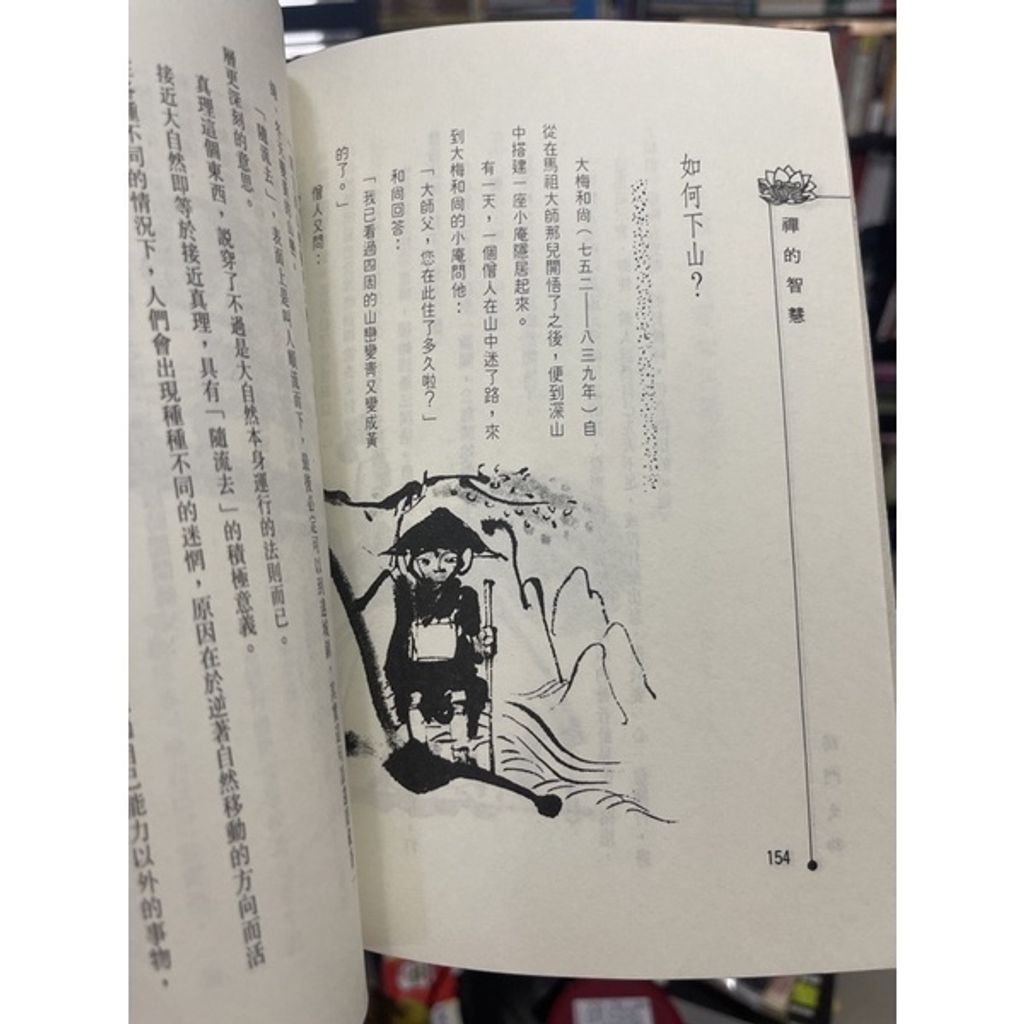 禪的智慧
如何下山？
大梅和尚（七五二——八三九年）自
從在馬祖大師那兒開悟了之後，便到深山
中搭建一座小庵隱居起來。
有一天，一個僧人在山中迷了路，來
到大梅和尚的小庵問他：
「大師父，您在此住了多久啦？」
和尚回答：
「我已看過四周的山巒變青又變成黃
的了。」
僧人又問：
154
「隨流去」，表面上是叫人順流而下，最後必定可以到達
層更深刻的意思。
真理這個東西，説穿了不過是大自然本身運行的法則而已。
接近大自然即等於接近真理，具有「隨流去」的積極意義。
種不同的情況下，人們會出現種種不同的迷惘，原因在於逆著自然移動的方向而活
自己能力以外的事物，